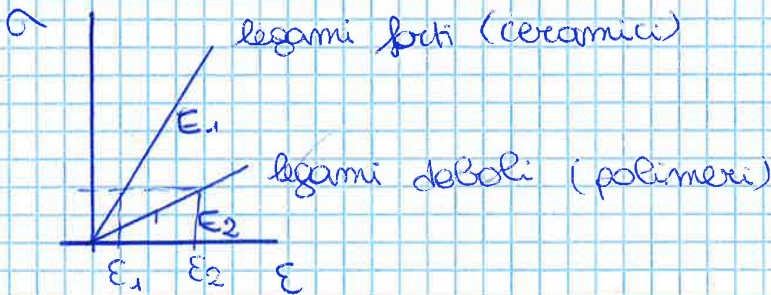 σ
legami forti (ceramici)
E1
legami deboli (polimeri)
E2
ε1 ε2 ε